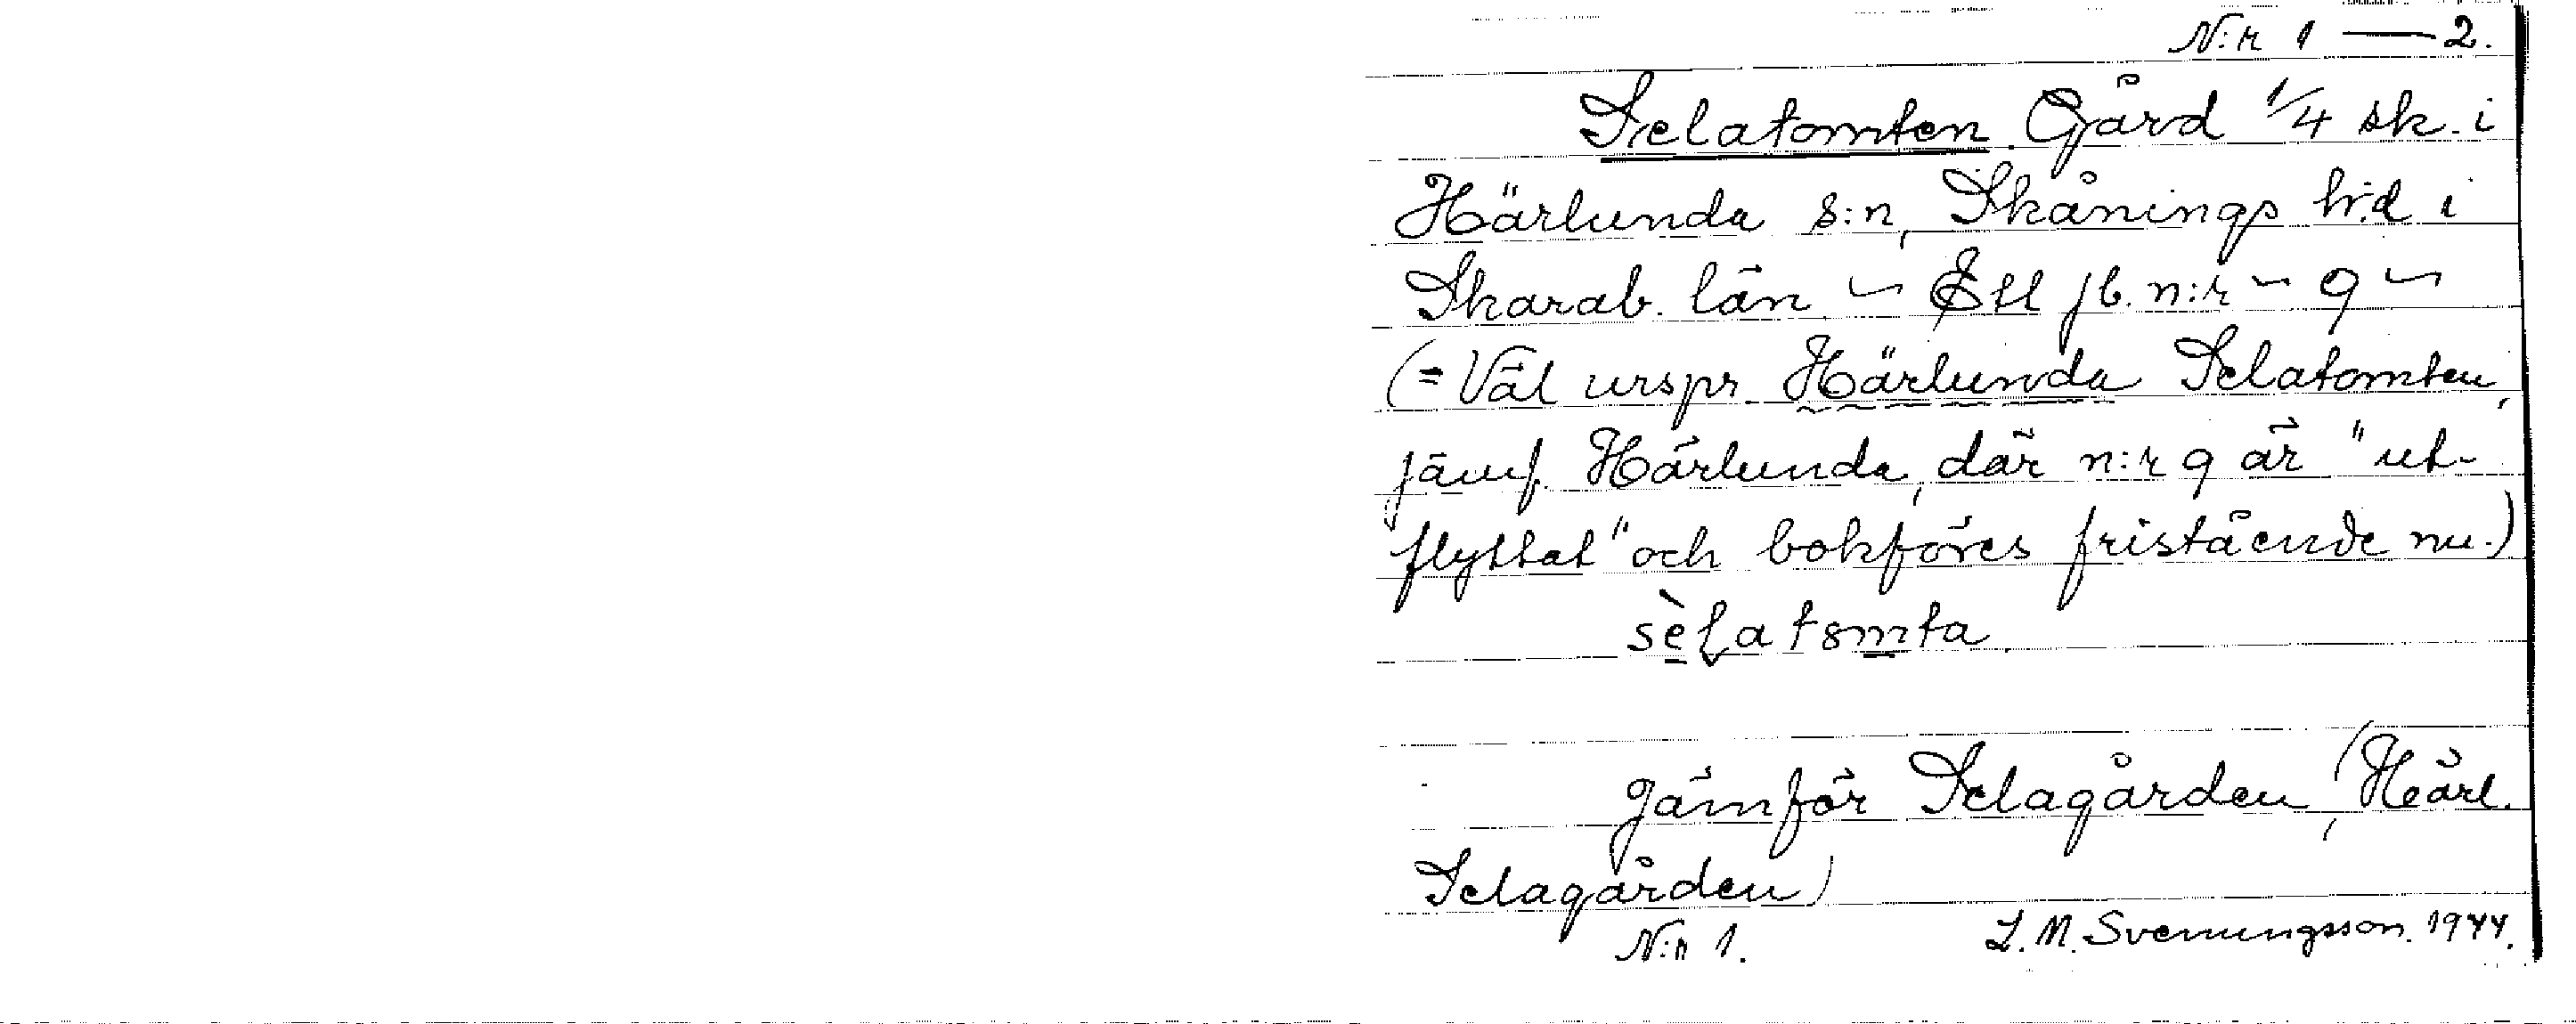 N:r 1 — 2.
Selatomten. Gård 1/4 sk. i
Härlunda s:n, Skånings h:d i
Skarab. län. ~ Ett jb. n:r ~ 9 ~
(= Väl urspr. Härlunda Selatomten,
jämf. Härlunda, där n:r 9 är "ut-
flyttat" och bokföres fristående nu.)
sèlatomta
Jämför Selagården, (Härl.
Selagården)
N:r 1. L. M. Svenungsson. 1944.